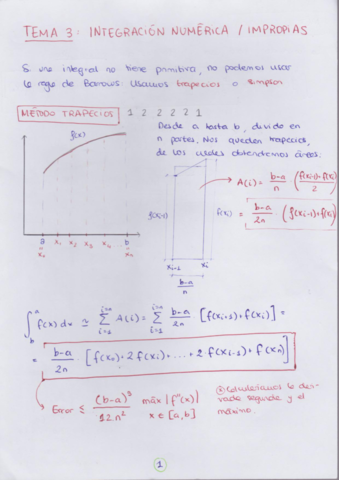 TEMA 3: INTEGRACIÓN NUMÉRICA / IMPROPIAS
Si una integral no tiene primitiva, no podemos usar
la regla de Barrows. Usamos trapecios o simpson
MÉTODO TRAPECIOS 1 2 2 2 2 1
f(x)
Desde a hasta b, divido en
n partes. Nos quedan trapecios,
de los cuales obtendremos áreas:
A(i) = b-a/n · (f(xi-1)+f(xi)/2)
f(xi-1) f(xi) = b-a/2n · (f(xi-1)+f(xi))
a x1 x2 x3 x4 b
x0 xn
xi-1 xi
b-a/n
∫ab f(x) dx ≃ Σi=1i=n A(i) = Σi=1i=n b-a/2n [f(xi-1)+f(xi)] =
= b-a/2n [f(x0)+2f(xi)+...+2f(xi-1)+f(xn)]
Error ≤ (b-a)3/12n2 máx |f''(x)| x ∈ [a,b]
Calcularíamos la deri-
vada segunda y el
máximo.
1